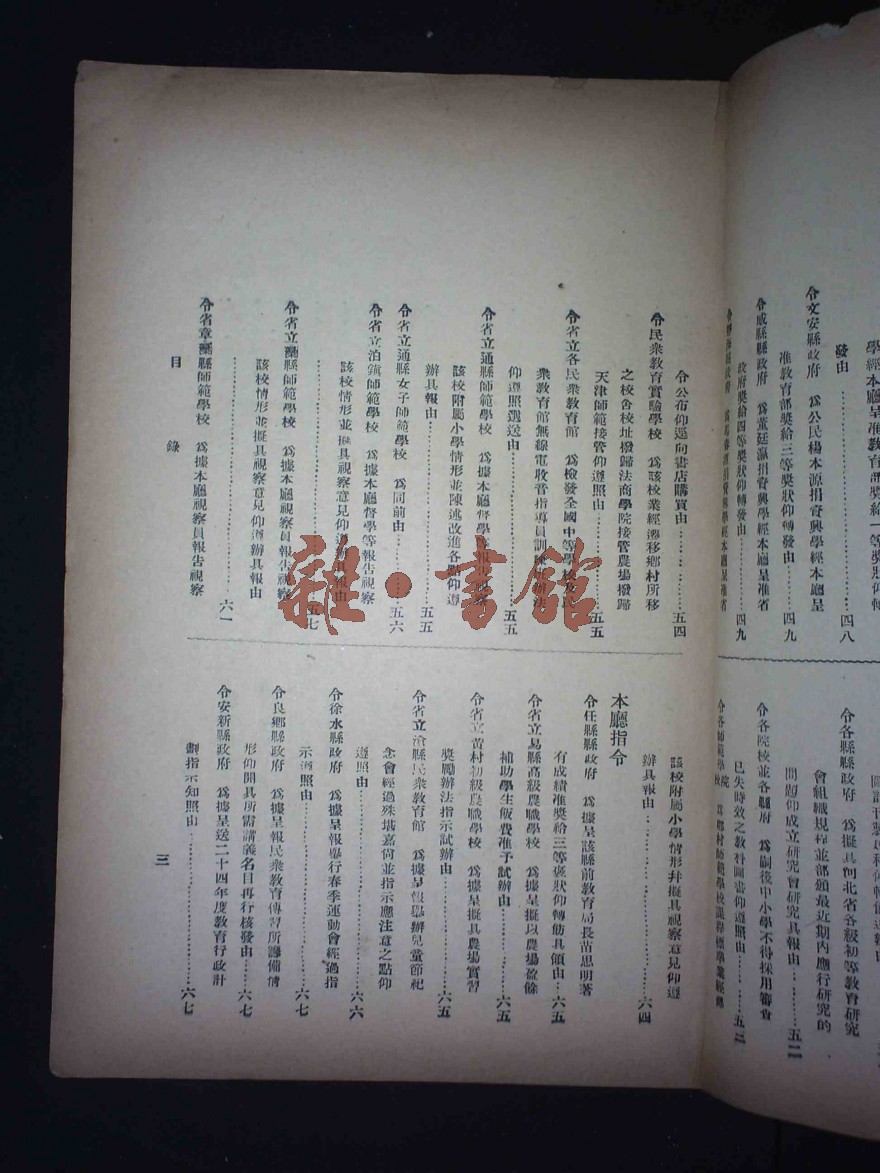 學經本廳呈准教育部獎給一等獎狀仰轉
發由……四八
令文安縣政府 爲公民楊本源捐資興學經本廳呈
准教育部獎給三等獎狀仰轉發由……四九
令威縣縣政府 爲董廷瀛捐資興學經本廳呈准省
政府獎給四等獎狀仰轉發由……四九
捐資興學經本廳呈准省
令公布仰逕向書店購買由……五四
令民衆教育實驗學校 爲該校業經遷移鄉村所移
之校舍校址撥歸法商學院接管農場撥歸
天津師範接管仰遵照由……五五
令省立各民衆教育館 爲檢發全國中等學校及民
衆教育館無線電收音指導員訓練班辦法
仰遵照選送由……五五
令省立通縣師範學校 爲據本廳督學
該校附屬小學情形並陳述改進各點仰遵
辦具報由……五五
令省立通縣女子師範學校 爲同前由……五六
令省立泊鎮師範學校 爲據本廳督學等報告視察
該校情形並擬具視察意見仰遵辦具報由
……五七
令省立 縣師範學校 爲據本廳視察員報告視察
該校情形並擬具視察意見仰遵辦具報由
……六一
令省 縣師範學校 爲據本廳視察員報告視察
目錄
令各縣縣政府 爲擬具河北省各級初等教育研究
會組織規程並部頒最近期內應行研究的
問題仰成立研究會研究具報由……五二
令各院校並各縣府 爲嗣後中小學不得採用審查
已失時效之教科圖書仰遵照由……五三
令各師範學院 爲鄉村師範學校課程標準業經
該校附屬小學情形幷擬具視察意見仰遵
辦具報由……六四
本廳指令
令任縣縣政府 爲據呈該縣前教育局長苗思明著
有成績准獎給三等褒狀仰轉飭具領由…六五
令省立易縣高級農職學校 爲據呈擬以農場盈餘
補助學生飯費准予試辦由……六五
令省立黃村初級農職學校 爲據呈擬具農場實習
獎勵辦法指示試辦由……六五
令省立滄縣民衆教育館 爲據呈報舉辦兒童節祀
念會經過殊堪嘉尚並指示應注意之點仰
遵照由……六六
令徐水縣政府 爲據呈報舉行春季運動會經過指
示遵照由……六七
令良鄉縣政府 爲據呈報民衆教育傳習所籌備情
形仰開具所需講義名目再行核發由……六七
令安新縣政府 爲據呈送二十四年度教育行政計
劃指示知照由……六七
三
雜·書館